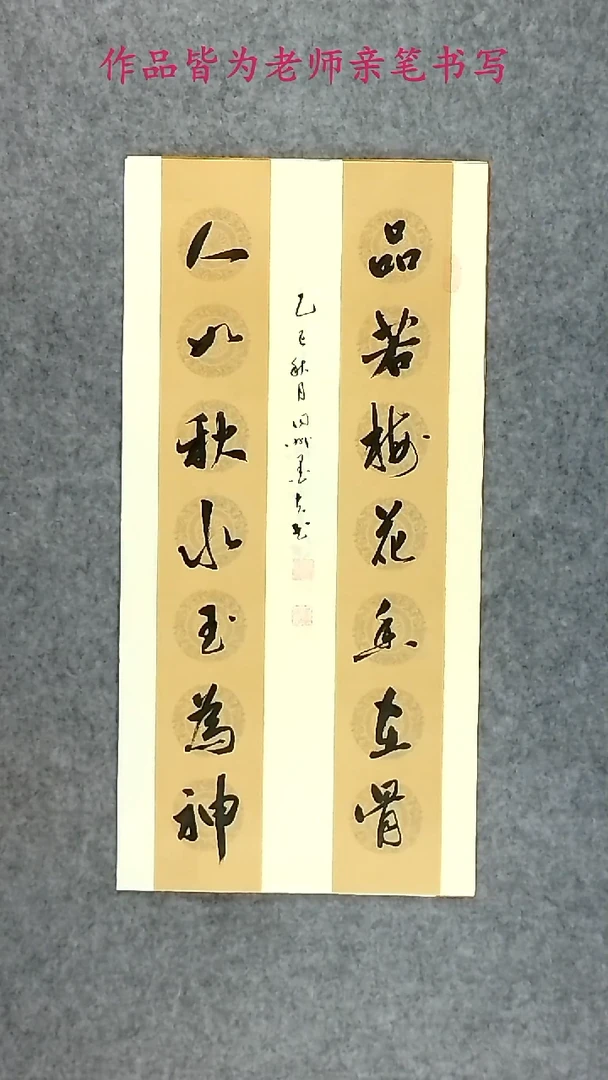 作品皆为老师亲笔书写
品若梅花香在骨
人如秋水玉為神
乙巳秋月